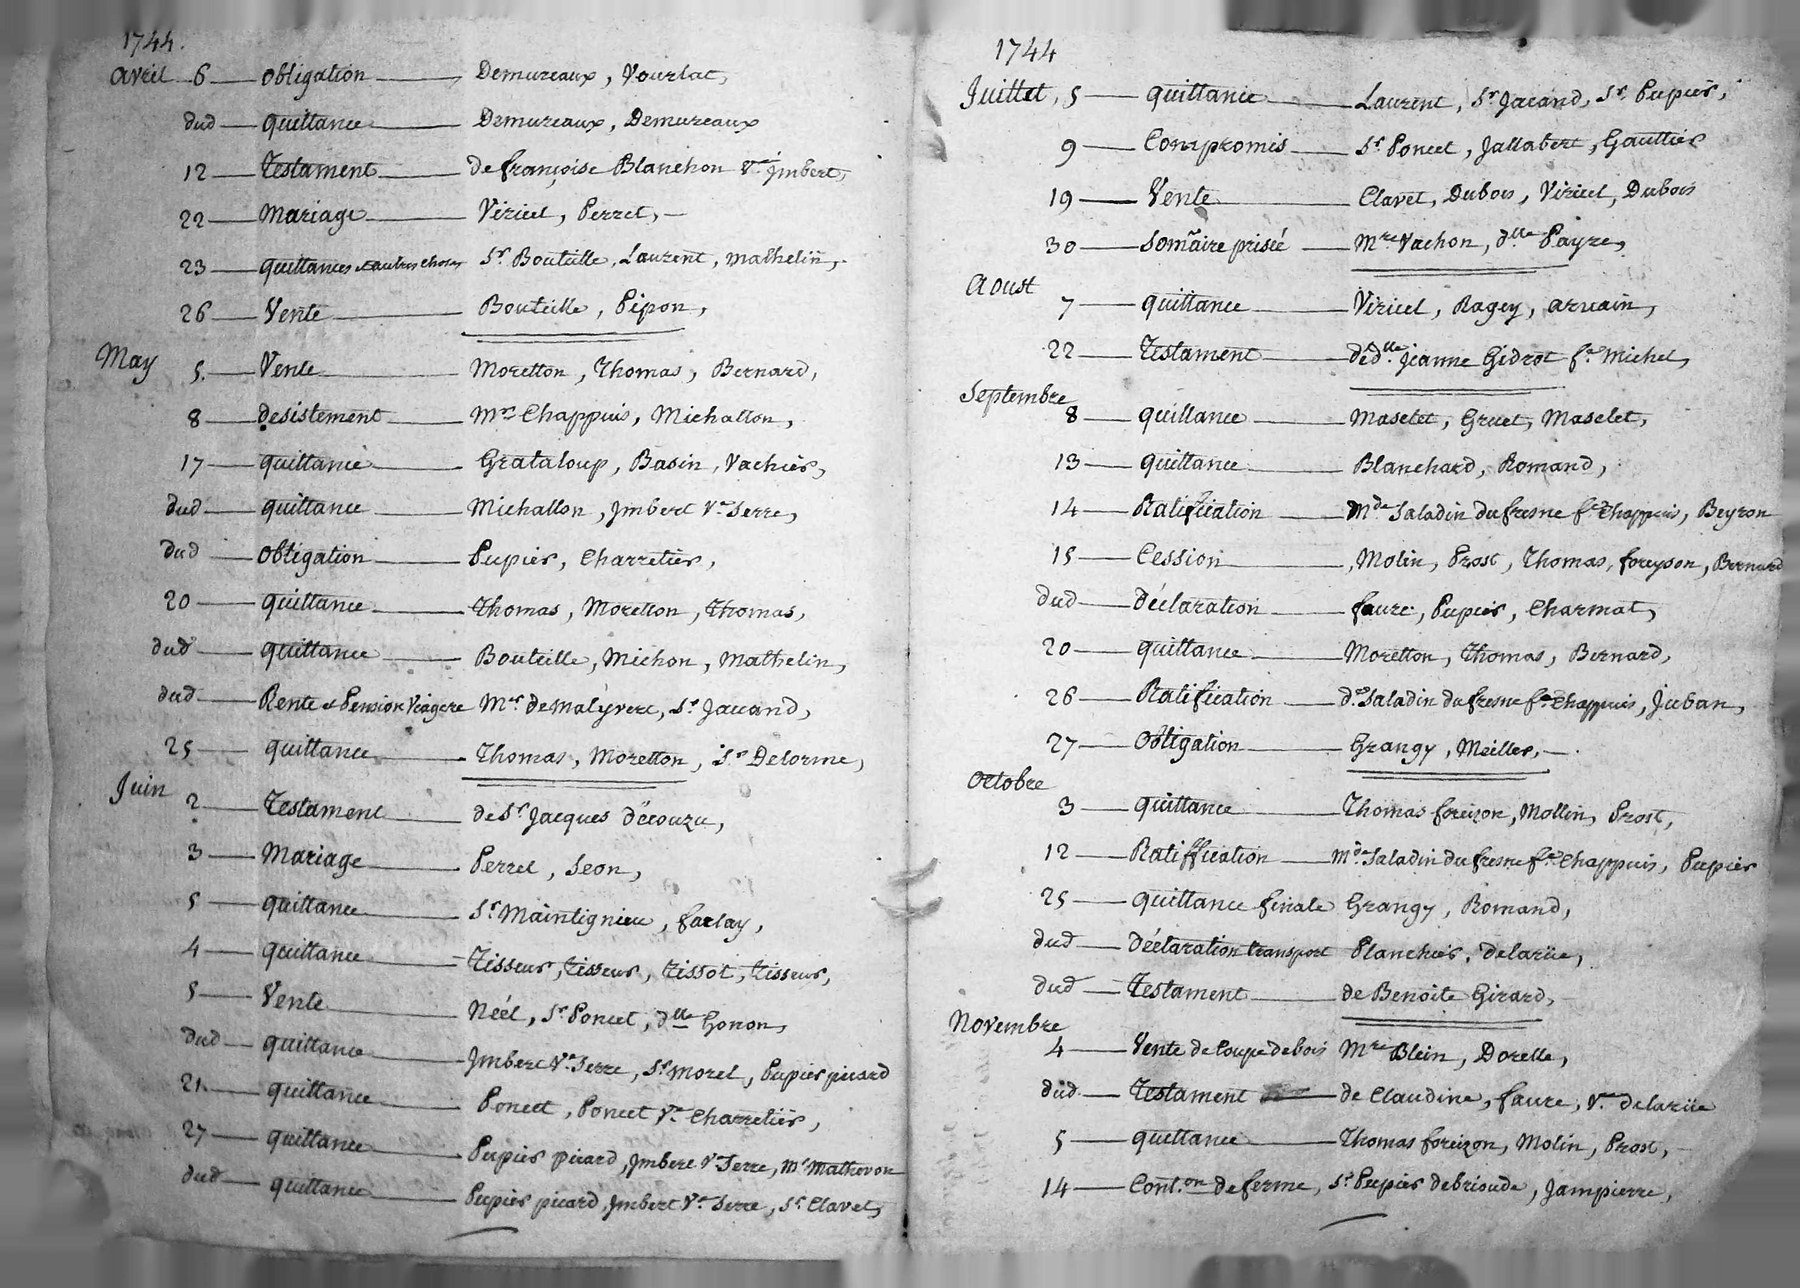 1744.
avril 6 obligation Demureaux, Vourlat,
dud quittance Demureaux, Demureaux
12 Testament de françoise Blanchon Ve. jmbert,
22 Mariage Viricel, Perret,
23 quittances et autres choses Sr. Bouteille, Laurent, mathelin,
26 Vente Bouteille, Pipon,
May 5. Vente Moretton, Thomas, Bernard,
8 desistement Mre Chappuis, Michallon,
17 quittance Grataloup, Basin, Vachier,
dud quittance Michallon, jmbert Ve Serre,
dud obligation Pupier, Charretier,
20 quittance Thomas, Moretton, Thomas,
dud quittance Bouteille, Michon, Mathelin,
dud Rente et Pension Viagere Mre. de malyvert, Sr. Jacand,
25 quittance Thomas, Moretton, Sr Delorme,
Juin 2 Testament de Sr. jacques découzu,
3 Mariage Perret, Seon,
5 quittance Sr Maintignieu, farlay,
4 quittance Tisseur, tisseur, tissot, tisseur,
5 Vente Néél, Sr. Poncet, dlle Gonon,
dud quittance jmbert Ve Serre, Sr. morel, Pupier picard
21 quittance Poncet, Poncet Ve Charretier,
27 quittance Pupier picard, jmbert Ve Serre, Mr Mathevon
dud quittance Pupier picard, jmbert Ve Serre, Sr. Clavel,
1744
Juillet, 5 quittance Laurent, Sr. Jacand, Sr. Pupier,
9 Compromis Sr. Poncet, Jallabert, Gaultier
19 Vente Clavel, Dubois, Viricel, Dubois
30 Somaire prisée Mre Vachon, dlle Payre,
Aoust
7 quittance Viricel, Ragey, arvain,
22 Testament de dlle jeanne Gidrot fe. Michel,
Septembre
8 quittance Maselet, Gruet, Maselet,
13 quittance Blanchard, Romand,
14 Ratification Mde Saladin du fresne fe Chappuis, Beyron
15 Cession Molin, Prost, Thomas, foreyson, Bernard
dud Déclaration faure, Pupier, Charmat,
20 quittance Moretton, Thomas, Bernard,
26 Ratification de. Saladin du fresne fe Chappuis, Juban,
27 Obligation Grangy, Meiller,
Octobre
3 quittance Thomas foreizon, Mollin, Prost,
12 Ratiffication Mde. Saladin du fresne fe. Chappuis, Pupier
25 quittance finale Grangy, Romand,
dud Déclaration transport Plancher, delarüe,
dud Testament de Benoite Girard,
Novembre
4 Vente de Coupe de bois Mre Blein, Dorelle,
dud Testament de Claudine, faure, Ve. delarüe
5 quittance Thomas foreizon, Molin, Prost,
14 Cont.on de ferme, Sr. Pupier de brioude, Jampierre,